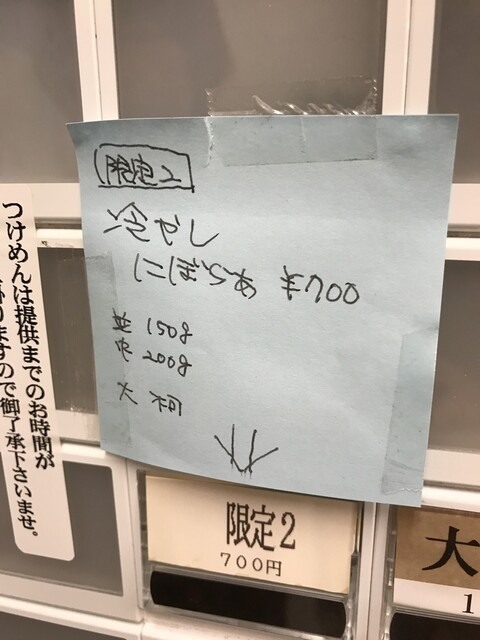 限定2
冷やし
にぼらあ ¥700
並 150g
中 200g
大 可
限定2
700円
つけめんは提供までのお時間が
りますので御了承下さいませ。
大
1